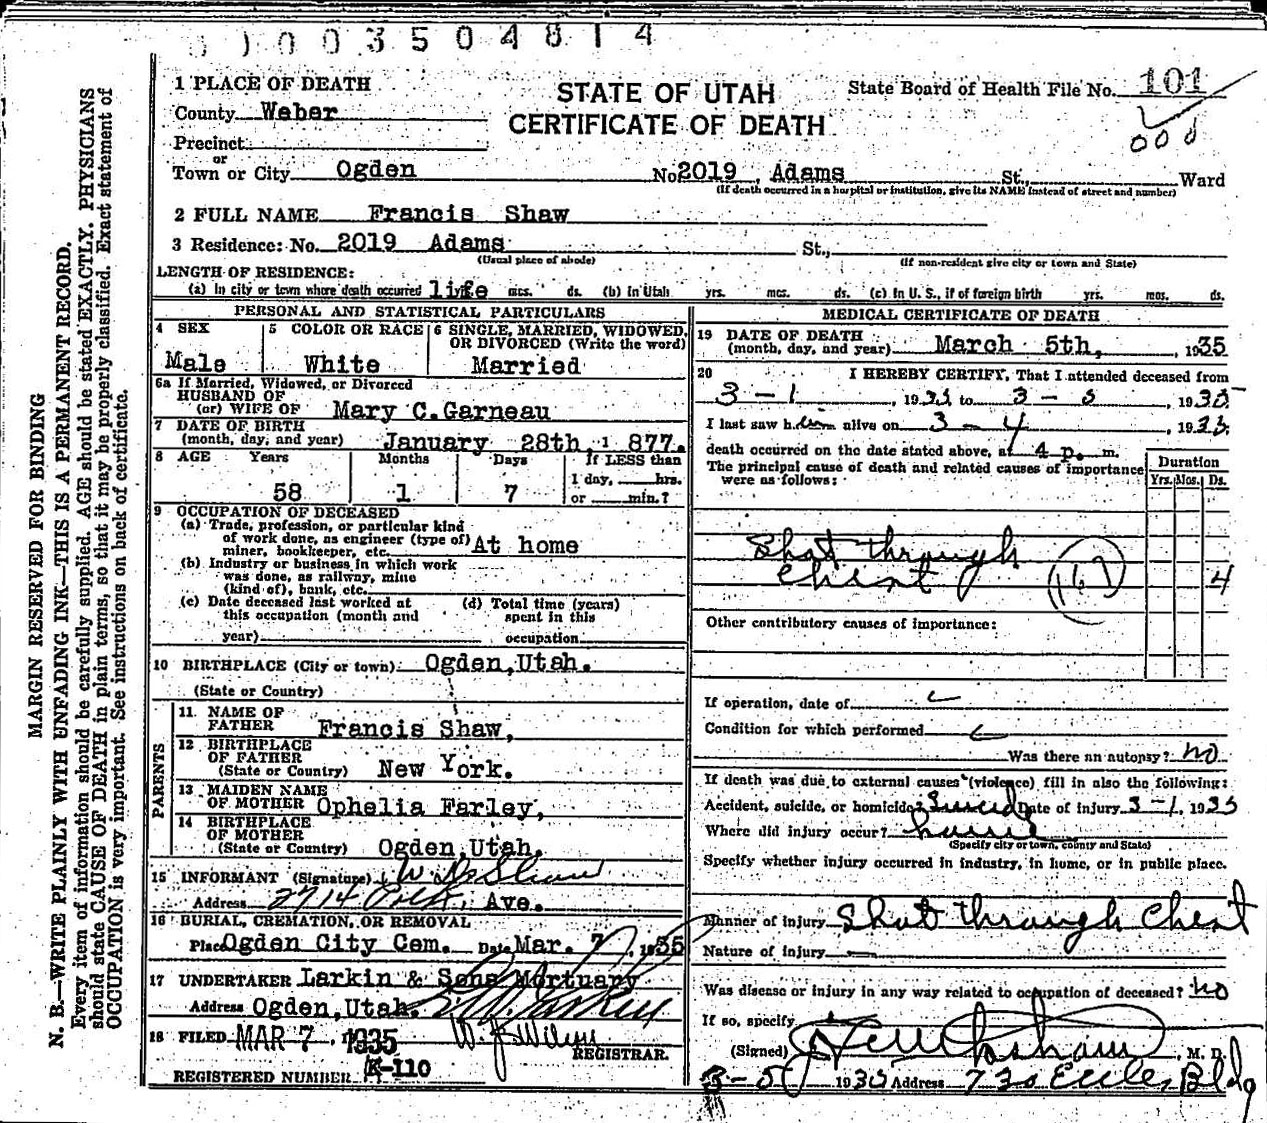 0003504814
1 PLACE OF DEATH
STATE OF UTAH
CERTIFICATE OF DEATH
State Board of Health File No. 101
County Weber
000
Precinct
or
Town or City Ogden No 2019 Adams St., Ward
(If death occurred in a hospital or institution, give its NAME instead of street and number)
2 FULL NAME Francis Shaw
3 Residence: No. 2019 Adams St.,
(Usual place of abode) (If non-resident give city or town and State)
LENGTH OF RESIDENCE:
(a) In city or town where death occurred life mos. ds. (b) In Utah yrs. mos. ds. (c) In U. S., if of foreign birth yrs. mos. ds.
PERSONAL AND STATISTICAL PARTICULARS
4 SEX Male
5 COLOR OR RACE White
6 SINGLE, MARRIED, WIDOWED, OR DIVORCED (Write the word) Married
6a If Married, Widowed, or Divorced
HUSBAND OF
(or) WIFE OF Mary C. Garneau
7 DATE OF BIRTH
(month, day, and year) January 28th, 1 877.
8 AGE Years Months Days If LESS than
1 day, hrs.
58 1 7 or min.?
9 OCCUPATION OF DECEASED
(a) Trade, profession, or particular kind
of work done, as engineer (type of)
miner, bookkeeper, etc. At home
(b) Industry or business in which work
was done, as railway, mine
(kind of), bank, etc.
(c) Date deceased last worked at
this occupation (month and
year)
(d) Total time (years)
spent in this
occupation
10 BIRTHPLACE (City or town) Ogden, Utah.
(State or Country)
PARENTS
11. NAME OF
FATHER Francis Shaw,
12 BIRTHPLACE
OF FATHER
(State or Country) New York.
13 MAIDEN NAME
OF MOTHER Ophelia Farley,
14 BIRTHPLACE
OF MOTHER
(State or Country) Ogden, Utah.
15 INFORMANT (Signature) Shaw
Address 2714 Ave.
16 BURIAL, CREMATION, OR REMOVAL
Place Ogden City Cem. Date Mar. 7, 1935
17 UNDERTAKER Larkin & Sons Mortuary
Address Ogden, Utah.
18 FILED MAR 7, 1935
REGISTRAR.
REGISTERED NUMBER K-110
MEDICAL CERTIFICATE OF DEATH
19 DATE OF DEATH
(month, day, and year) March 5th, , 1935
20 I HEREBY CERTIFY, That I attended deceased from
3-1, 1935 to 3-5, 1935
I last saw him alive on 3-4, 1935
death occurred on the date stated above, at 4 p. m.
The principal cause of death and related causes of importance
were as follows:
Duration
Yrs. Mos. Ds.
Shot through
chest (167) 4
Other contributory causes of importance:
If operation, date of
Condition for which performed
Was there an autopsy? no
If death was due to external causes (violence) fill in also the following:
Accident, suicide, or homicide? Suicide Date of injury 3-1, 1935
Where did injury occur? home
(Specify city or town, county and State)
Specify whether injury occurred in industry, in home, or in public place.
Manner of injury Shot through Chest
Nature of injury
Was disease or injury in any way related to occupation of deceased? no
If so, specify
(Signed) , M. D.
3-5 1935 Address 730 Eccles Bldg
MARGIN RESERVED FOR BINDING
N. B.—WRITE PLAINLY WITH UNFADING INK—THIS IS A PERMANENT RECORD.
Every item of information should be carefully supplied. AGE should be stated EXACTLY. PHYSICIANS
should state CAUSE OF DEATH in plain terms, so that it may be properly classified. Exact statement of
OCCUPATION is very important. See instructions on back of certificate.